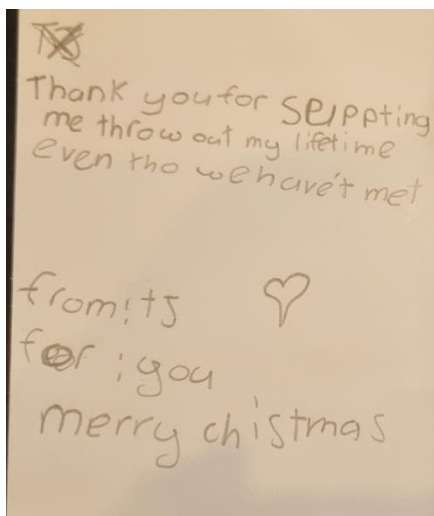 Thank you for seuppting
me throw out my lifetime
even tho we have't met
from: ts
for: you
merry chistmas